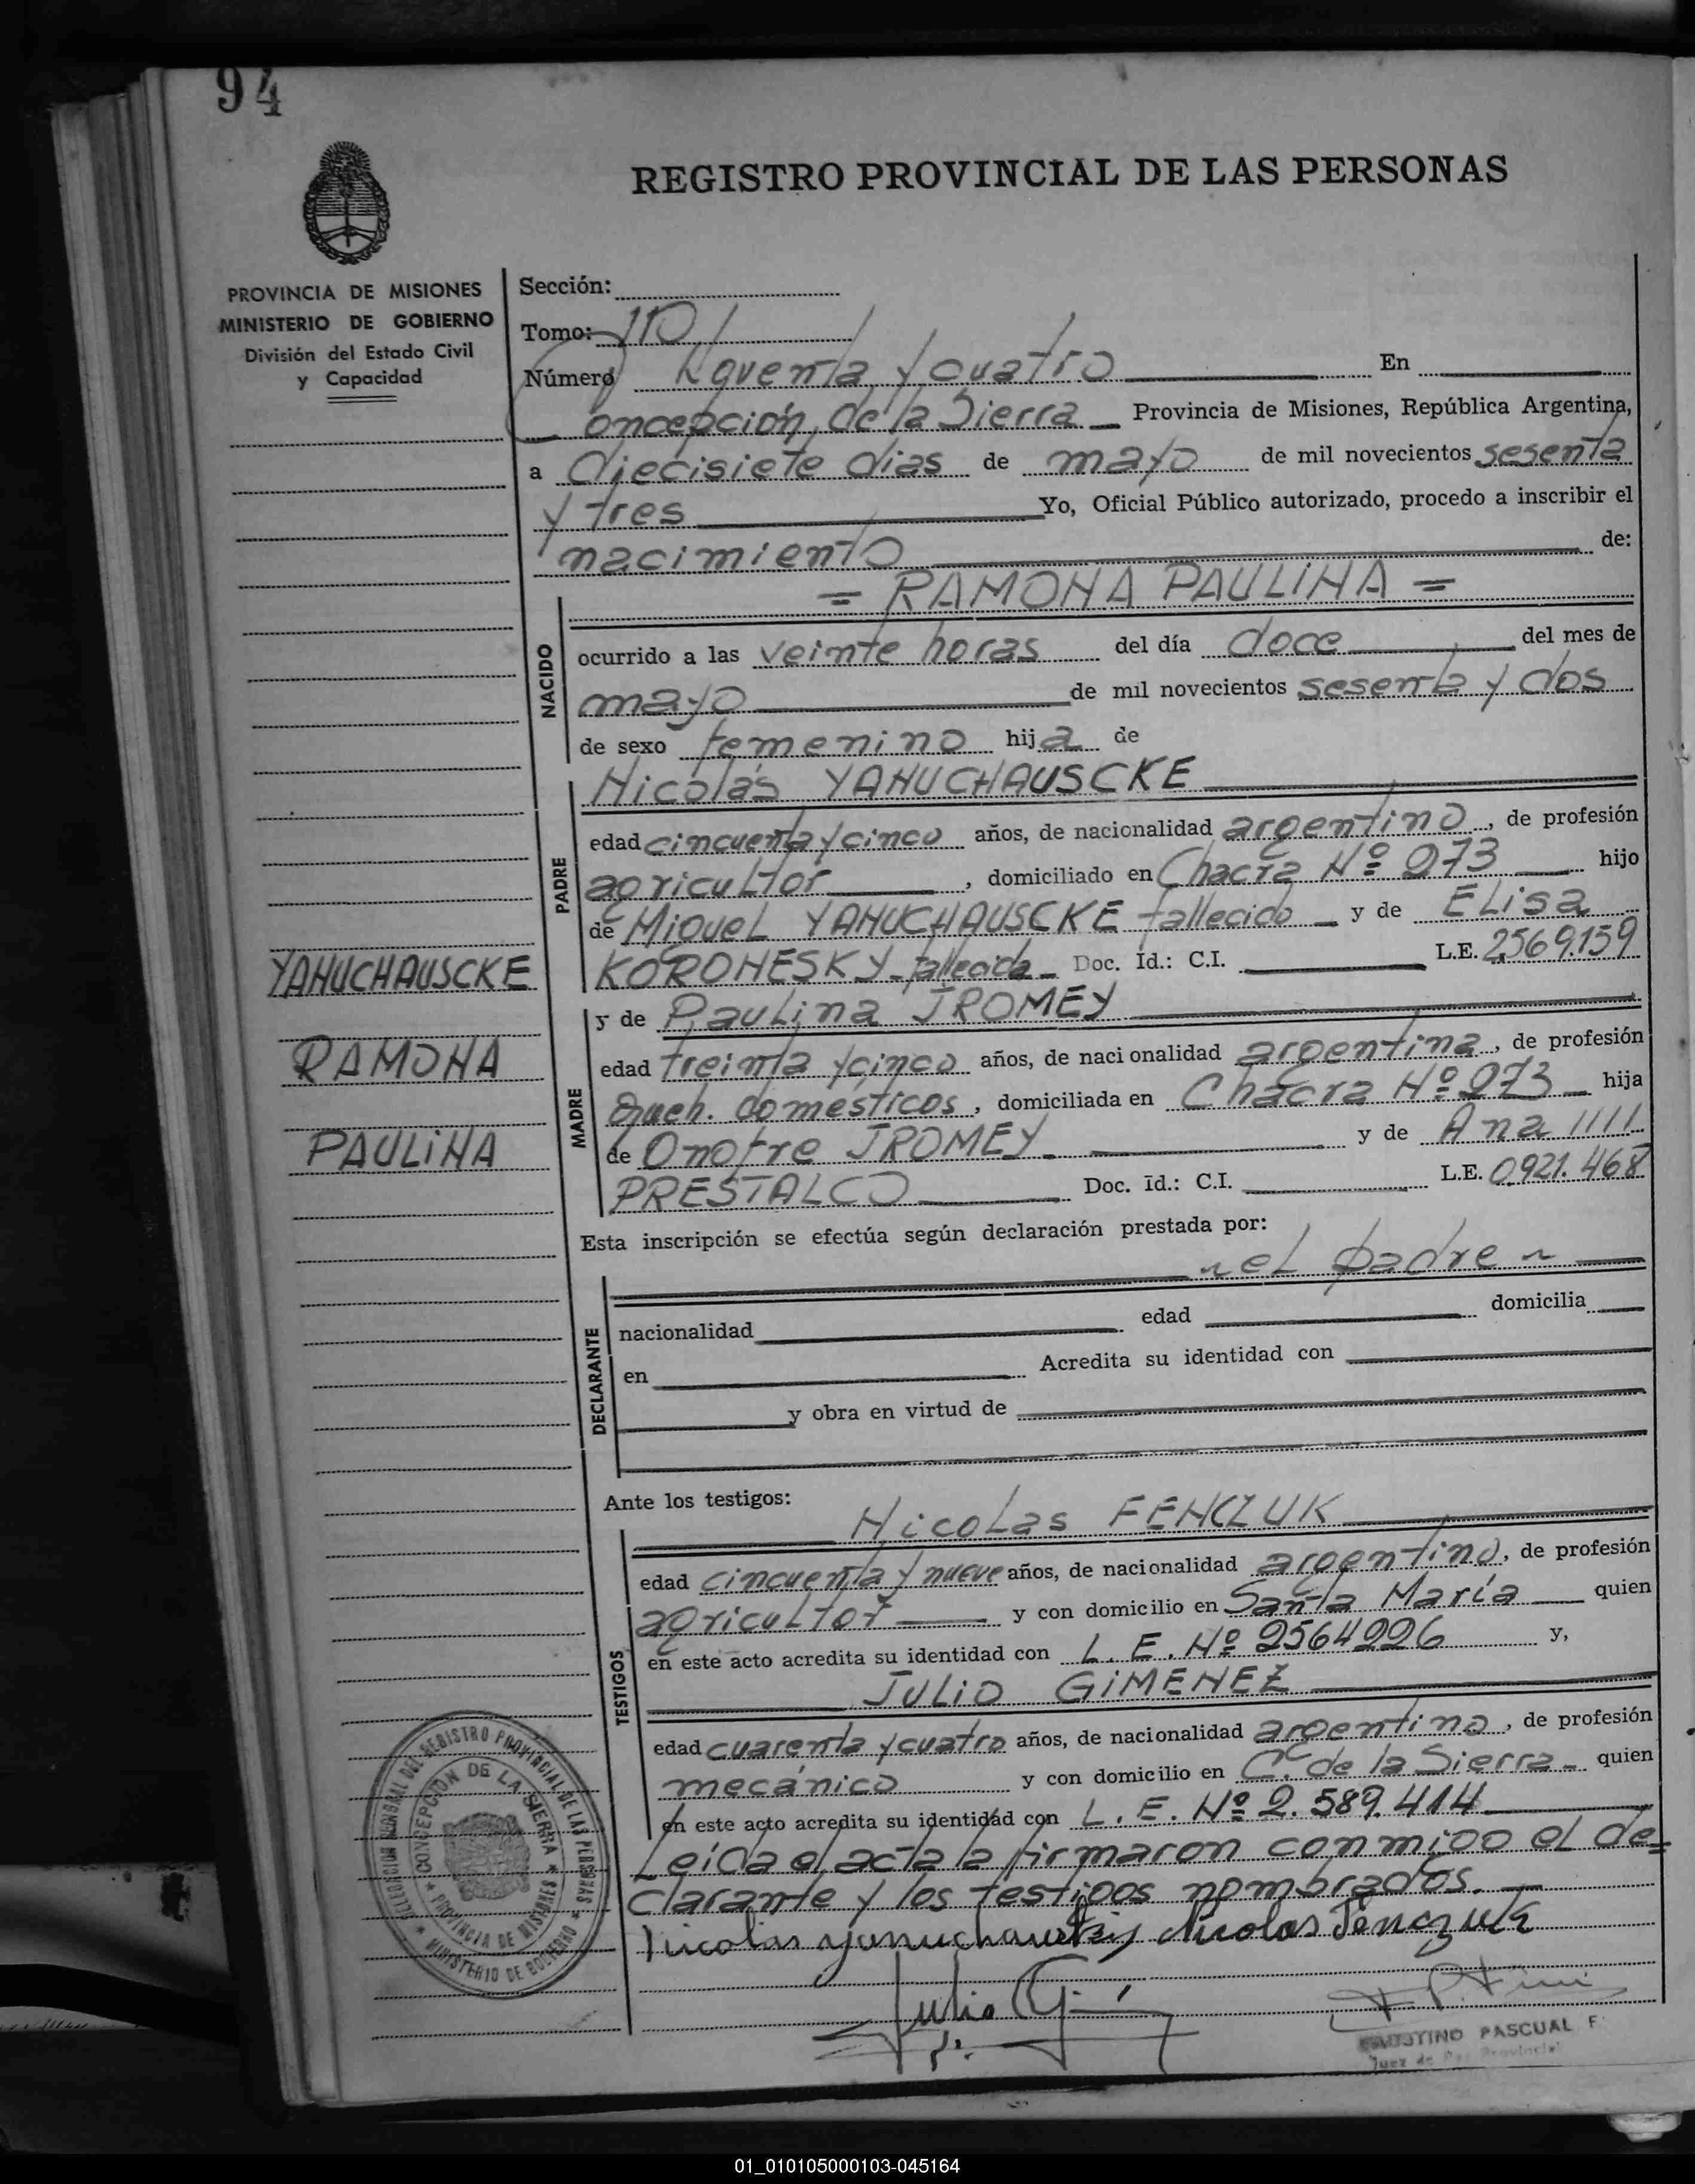 94
REGISTRO PROVINCIAL DE LAS PERSONAS
PROVINCIA DE MISIONES
MINISTERIO DE GOBIERNO
División del Estado Civil
y Capacidad
Sección:
Tomo: 1º
Número Noventa y cuatro En
Concepción de la Sierra Provincia de Misiones, República Argentina,
a diecisiete dias de mayo de mil novecientos sesenta
y tres Yo, Oficial Público autorizado, procedo a inscribir el
nacimiento de:
= RAMONA PAULINA =
NACIDO
ocurrido a las veinte horas del día doce del mes de
mayo de mil novecientos sesenta y dos
de sexo femenino hija de
PADRE
Nicolás YANUCHAUSCKE
edad cincuenta y cinco años, de nacionalidad argentino, de profesión
agricultor, domiciliado en Chacra Nº 273 hijo
de Miguel YANUCHAUSCKE fallecido y de Elisa
KORONESKY fallecida Doc. Id.: C.I. L.E. 2,569.159
YANUCHAUSCKE
RAMONA
PAULINA
MADRE
y de Paulina JROMEY
edad treinta y cinco años, de nacionalidad argentina, de profesión
Queh. domésticos, domiciliada en Chacra Nº 273 hija
de Onofre JROMEY y de Ana
PRESTALCO Doc. Id.: C.I. L.E. 0.921.468
Esta inscripción se efectúa según declaración prestada por:
el padre
DECLARANTE
nacionalidad edad domicilia
en Acredita su identidad con
y obra en virtud de
Ante los testigos:
TESTIGOS
Nicolas FENCZUK
edad cincuenta y nueve años, de nacionalidad argentino, de profesión
agricultor y con domicilio en Santa María quien
en este acto acredita su identidad con L. E. Nº 2564226 y,
JULIO GIMENEZ
edad cuarenta y cuatro años, de nacionalidad argentino, de profesión
mecánico y con domicilio en C. de la Sierra quien
en este acto acredita su identidad con L. E. Nº 2.589.414
Leída el acta la firmaron conmigo el de=
clarante y los testigos nombrados.
Nicolas Nicolas Fenczuk
Julio
PASCUAL F.
Juez de Paz Provincial
DELEGACION DEL REGISTRO PROVINCIAL DE LAS PERSONAS
MINISTERIO DE GOBIERNO
CONCEPCION DE LA SIERRA
PROVINCIA DE MISIONES
01_010105000103-045164